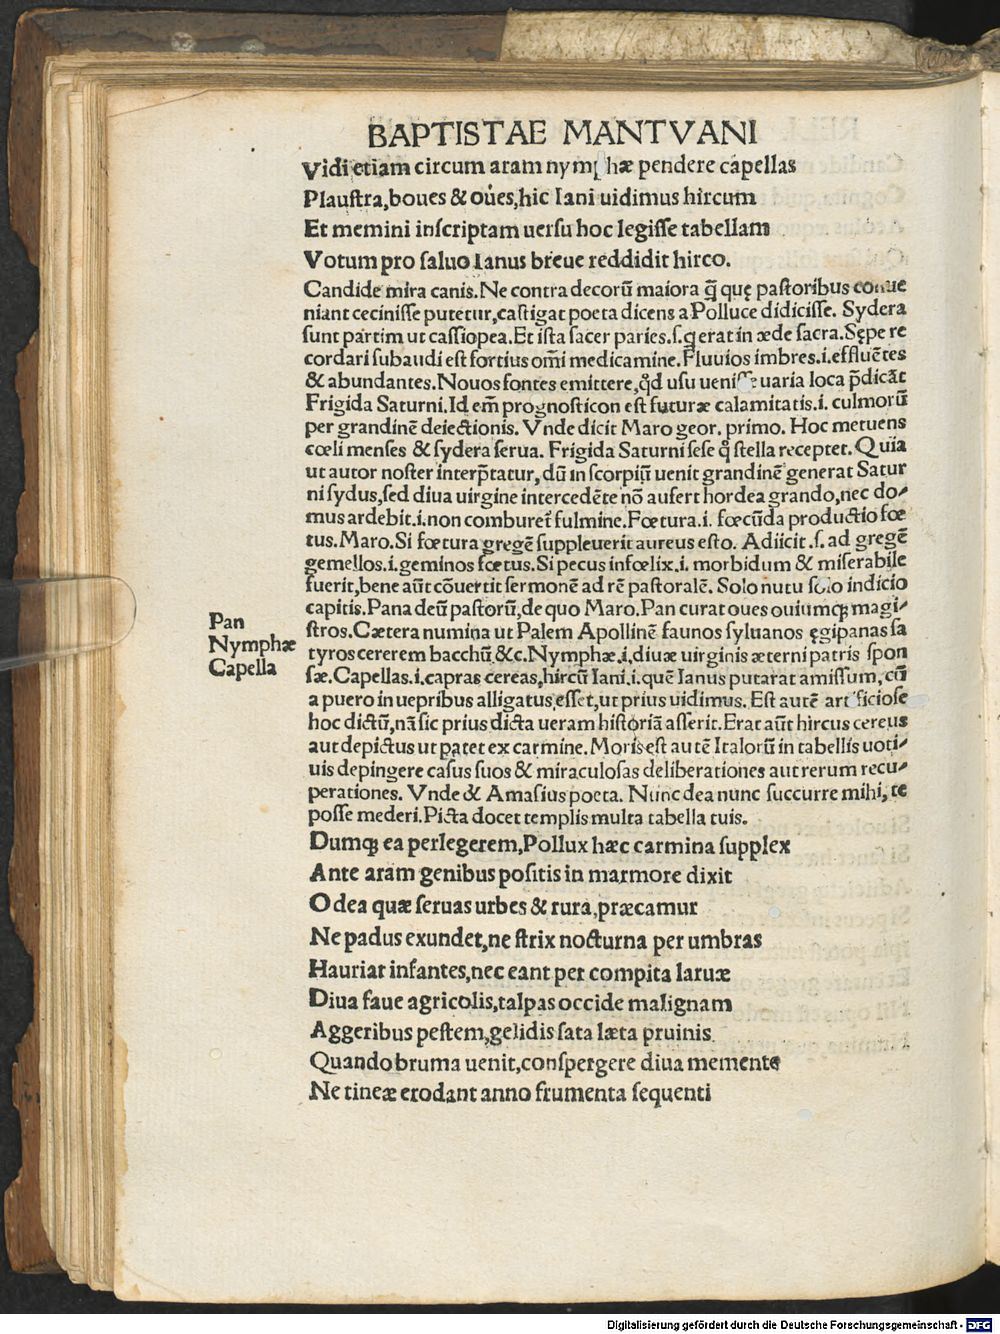 BAPTISTAE MANTVANI
Vidi etiam circum aram nymphæ pendere capellas
Plauſtra,boues & oues,hic Iani uidimus hircum
Et memini inſcriptam uerſu hoc legiſſe tabellam
Votum pro ſaluo Ianus breue reddidit hirco.
Candide mira canis.Ne contra decorū maiora q̄ quę paſtoribus conue
niant ceciniſſe putetur,caſtigat poeta dicens a Polluce didiciſſe. Sydera
ſunt partim ut caſſiopea.Et iſta ſacer paries.ſ.q erat in æde ſacra.Sępe re
cordari ſubaudi eſt fortius om̄i medicamine.Fluuios imbres.i.effluētes
& abundantes.Nouos fontes emittere,qd̄ uſu ueniſſe uaria loca p̄dicāt
Frigida Saturni.Id em̄ prognoſticon eſt futuræ calamitatis.i. culmorū
per grandinē deiectionis. Vnde dicit Maro geor. primo. Hoc metuens
cœli menſes & ſydera ſerua. Frigida Saturni ſeſe q̊ ſtella receptet. Quia
ut autor noſter interp̄tatur, dū in ſcorpiū uenit grandinē generat Satur
ni ſydus,ſed diua uirgine intercedēte nō aufert hordea grando,nec do⸗
mus ardebit.i.non comburet̄ fulmine.Fœtura.i. fœcūda productio fœ
tus.Maro.Si fœtura gregē ſuppleuerit aureus eſto. Adiicit .ſ. ad gregē
gemellos.i.geminos fœtus.Si pecus infœlix.i. morbidum & miſerabile
fuerit,bene aūt cōuertit ſermonē ad rē paſtoralē. Solo nutu ſolo indicio
capitis.Pana deū paſtorū,de quo Maro.Pan curat oues ouiumqꝫ magi⸗
ſtros.Cætera numina ut Palem Apollinē faunos ſyluanos ęgipanas ſa
tyros cererem bacchū &c.Nymphæ.i.diuæ uirginis æterni patris ſpon
ſæ.Capellas.i.capras cereas,hircū Iani.i.quē Ianus putarat amiſſum,cū
a puero in uepribus alligatus eſſet,ut prius uidimus. Eſt autē artificioſe
hoc dictū,nā ſic prius dicta ueram hiſtoriā aſſerit.Erat aūt hircus cereus
aut depictus ut patet ex carmine.Moris eſt autē Italorū in tabellis uoti⸗
uis depingere caſus ſuos & miraculoſas deliberationes aut rerum recu⸗
perationes. Vnde & Amaſius poeta. Nunc dea nunc ſuccurre mihi, te
poſſe mederi.Picta docet templis multa tabella tuis.
Pan
Nymphæ
Capella
Dumqꝫ ea perlegerem,Pollux hæc carmina ſupplex
Ante aram genibus poſitis in marmore dixit
O dea quæ ſeruas urbes & rura,præcamur
Ne padus exundet,ne ſtrix nocturna per umbras
Hauriat infantes,nec eant per compita laruæ
Diua faue agricolis,talpas occide malignam
Aggeribus peſtem,gelidis ſata læta pruinis
Quando bruma uenit,conſpergere diua memento
Ne tineæ erodant anno frumenta ſequenti
Digitalisierung gefördert durch die Deutsche Forschungsgemeinschaft - DFG